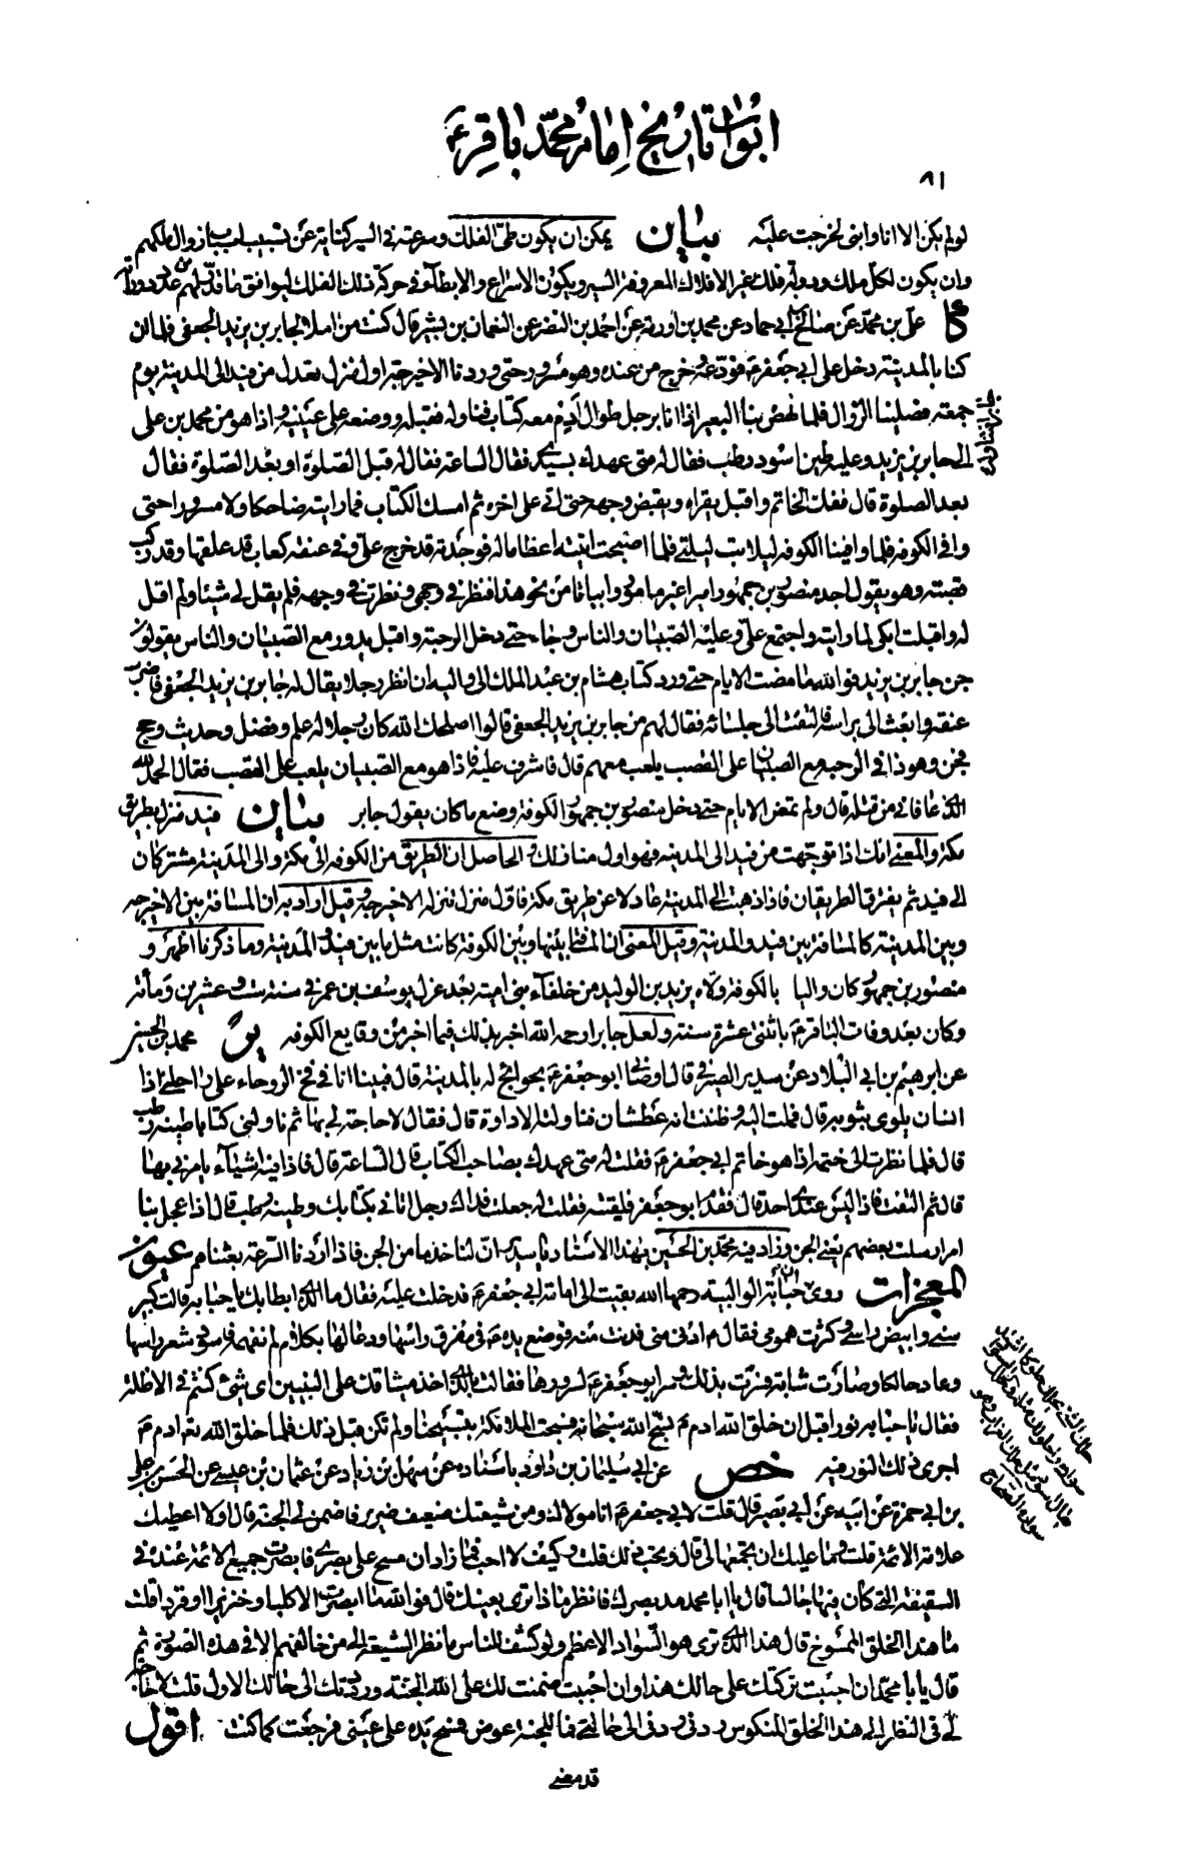 ابواب تاريخ امام محمد باقر ع
٨١
لو لم يكن الا انا وابنى لخرجت عليه بيان يمكن ان يكون طى الفلك وسرعته فى السير كناية عن تسبيب اسباب زوال ملكهم
وان يكون لكل ملك ودولة فلك غير الافلاك المعروفة السير ويكون الاسراع والابطاء فى حركة ذلك الفلك ليوافق ما قدر لهم من عدد دوراته
كا على بن محمد عن صالح بن ابى حماد عن محمد بن اورمة عن احمد بن النضر عن النعمان بن بشير قال كنت مزاملا لجابر بن يزيد الجعفى فلما ان
كنا بالمدينة دخل على ابى جعفر ع فودعه وخرج من عنده وهو مسرور حتى وردنا الاخيرجة اول منزل تعدل من فيد الى المدينة يوم
جمعة فصلينا الزوال فلما نهض بنا البعير اذا انا برجل طوال آدم معه كتاب فناوله فقبله ووضعه على عينيه واذا هو من محمد بن على
الى جابر بن يزيد وعليه طين اسود رطب فقال له متى عهدك بسيدى فقال الساعة فقال له قبل الصلوة او بعد الصلوة فقال
بعد الصلوة قال ففك الخاتم واقبل يقراه ويقبض وجهه حتى اتى على اخره ثم امسك الكتاب فما رايته ضاحكا ولا مسرورا حتى
وافى الكوفة فلما وافينا الكوفه ليلا بت ليلتى فلما اصبحت اتيته اعظاما له فوجدته قد خرج على وفى عنقه كعاب قد علقها وقد ركب
قصبة وهو يقول اجد منصور بن جمهور اميرا غير مامور وابياتا من نحو هذا فنظر فى وجهى ونظرت فى وجهه فلم يقل لى شيئا ولم اقل
له واقبلت ابكى لما رايته واجتمع على وعليه الصبيان والناس وجاء حتى دخل الرحبة واقبل يدور مع الصبيان والناس يقولون
جن جابر بن يزيد فوالله ما مضت الايام حتى ورد كتاب هشام بن عبد الملك الى واليه ان انظر رجلا يقال له جابر بن يزيد الجعفى فاضرب
عنقه وابعث الى براسه فالتفت الى جلسائه فقال لهم من جابر بن يزيد الجعفى قالوا اصلحك الله كان رجلا له علم وفضل وحديث وحج
فجن وهو ذا فى الرحبة مع الصبيان على القصب يلعب معهم قال فاشرف عليه فاذا هو مع الصبيان يلعب على القصب فقال الحمد لله
الذى عافانى من قتله قال ولم تمض الايام حتى دخل منصور بن جمهور الكوفة وصنع ما كان يقول جابر بيان فيد منزل بطريق
مكة والمعنى انك اذا توجهت من فيد الى المدينة فهو اول منازلك والحاصل ان الطريق من الكوفه الى مكة والى المدينة مشتركان
الى فيد ثم يفترق الطريقان فاذا ذهبت الى المدينة عادلا عن طريق مكة فاول منزل تنزله الاخيرجة وقيل اراد به ان المسافة بين الاخيرجه
وبين المدينة كالمسافة بين فيد والمدينة وقيل المعنى ان المسافة بينها وبين الكوفة كانت مثل ما بين فيد والمدينة وما ذكرنا اظهر و
منصور بن جمهور كان واليا بالكوفة ولاه يزيد بن الوليد من خلفاء بنى امية بعد عزل يوسف بن عمر فى سنة ست وعشرين ومائة
وكان بعد وفات الباقر ع باثنتى عشرة سنة ولعل جابرا رحمه الله اخبر بذلك فيما اخبر من وقايع الكوفه ير محمد بن الحسين
عن ابرهيم بن ابى البلاد عن سدير الصيرفى قال اوصانى ابو جعفر ع بحوايج له بالمدينة قال فبينا انا فى فخ الروحاء على راحلتى اذا
انسان يلوى بثوبه قال فملت اليه وظننت انه عطشان فناولته الاداوة قال فقال لا حاجة لى بها ثم ناولنى كتابا طينه رطب
قال فلما نظرت الى ختمه اذا هو خاتم ابى جعفر ع فقلت له متى عهدك بصاحب الكتاب قال الساعة قال فاذا فيه اشياء يامرنى بها
قال ثم التفت فاذا ليس عندى احد قال فقدم ابو جعفر فلقيته فقلت له جعلت فداك رجل اتانى بكتابك وطينه رطب قال اذا عجل بنا
امر ارسلت بعضهم يعنى الجن وزاد فيه محمد بن الحسين بهذا الاسناد يا سدير ان لنا خدما من الجن فاذا اردنا السرعة بعثناهم عيون
المعجزات روى ان حبابة الوالبية رحمها الله بقيت الى امامة ابى جعفر ع فدخلت عليه فقال ما الذى ابطا بك يا حبابه قالت كبر
سنى وابيض راسى وكثرت همومى فقال ع ادنى منى فدنت منه فوضع يده ع فى مفرق راسها ودعا لها بكلام لم نفهمه فاسود شعر راسها
وعاد حالكا وصارت شابة فسرت بذلك وسر ابو جعفر ع لسرورها فقالت بالذى اخذ ميثاقك على النبيين اى شىء كنتم فى الاظلة
فقال يا حبابه نورا قبل ان خلق الله ادم ع نسبح الله سبحانه فسبحت الملائكة بتسبيحنا ولم تكن قبل ذلك فلما خلق الله تعا ادم ع
اجرى ذلك النور فيه خص عن ابى سليمان بن داود باسناده عن سهل بن زياد عن عثمان بن عيسى عن الحسن بن على
بن ابى حمزة عن ابيه عن ابى بصير قال قلت لابى جعفر ع انا مولاك ومن شيعتك ضعيف ضرير فاضمن لى الجنة قال اولا اعطيك
علامة الائمة قلت وما عليك ان تجمعها لى قال وتحب ذلك قلت وكيف لا احب فما زاد ان مسح على بصرى فابصرت جميع الائمة عنده فى
السقيفة التى كان فيها جالسا قال يا ابا محمد مد بصرك فانظر ماذا ترى بعينك قال فوالله ما ابصرت الا كلبا وخنزيرا او قردا قلت
ما هذا الخلق الممسوخ قال هذا الذى ترى هو السواد الاعظم ولو كشف للناس ما نظر الشيعة الى من خالفهم الا فى هذه الصورة ثم
قال يا با محمد ان احببت تركتك على حالك هذا وان احببت ضمنت لك على الله الجنة ورددتك الى حالك الاول قلت لا حاجة
لى فى النظر الى هذا الخلق المنكوس ردنى ردنى الى حالتى فما للجنة عوض فمسح يده على عينى فرجعت كما كنت اقول
قد مضى